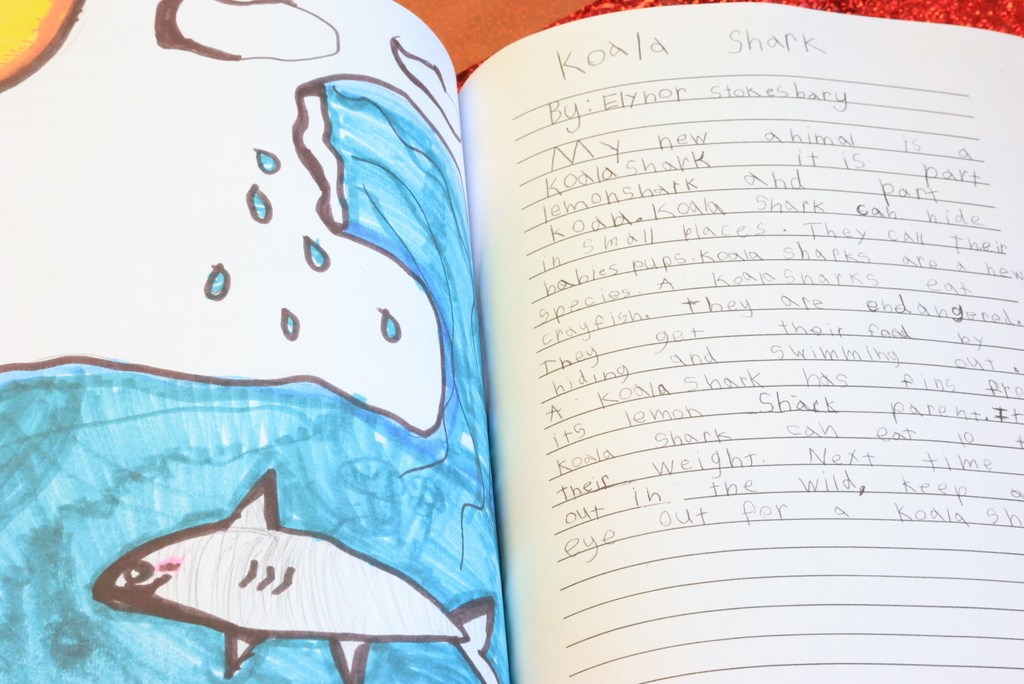 Koala Shark
By: Elynor Stokesbary
My new animal is a
Koalashark it is part
lemonshark and part
koala. Koala Shark can hide
in small places. They call their
babies pups. Koala sharks are a new
species. A koalasharks eat
crayfish. they are endangered.
They get their food by
hiding and swimming out.
A Koala shark has fins
its lemon Shark parent.
Koala shark can eat 10
their weight. Next time
out in the wild, keep
eye out for a Koala
eye